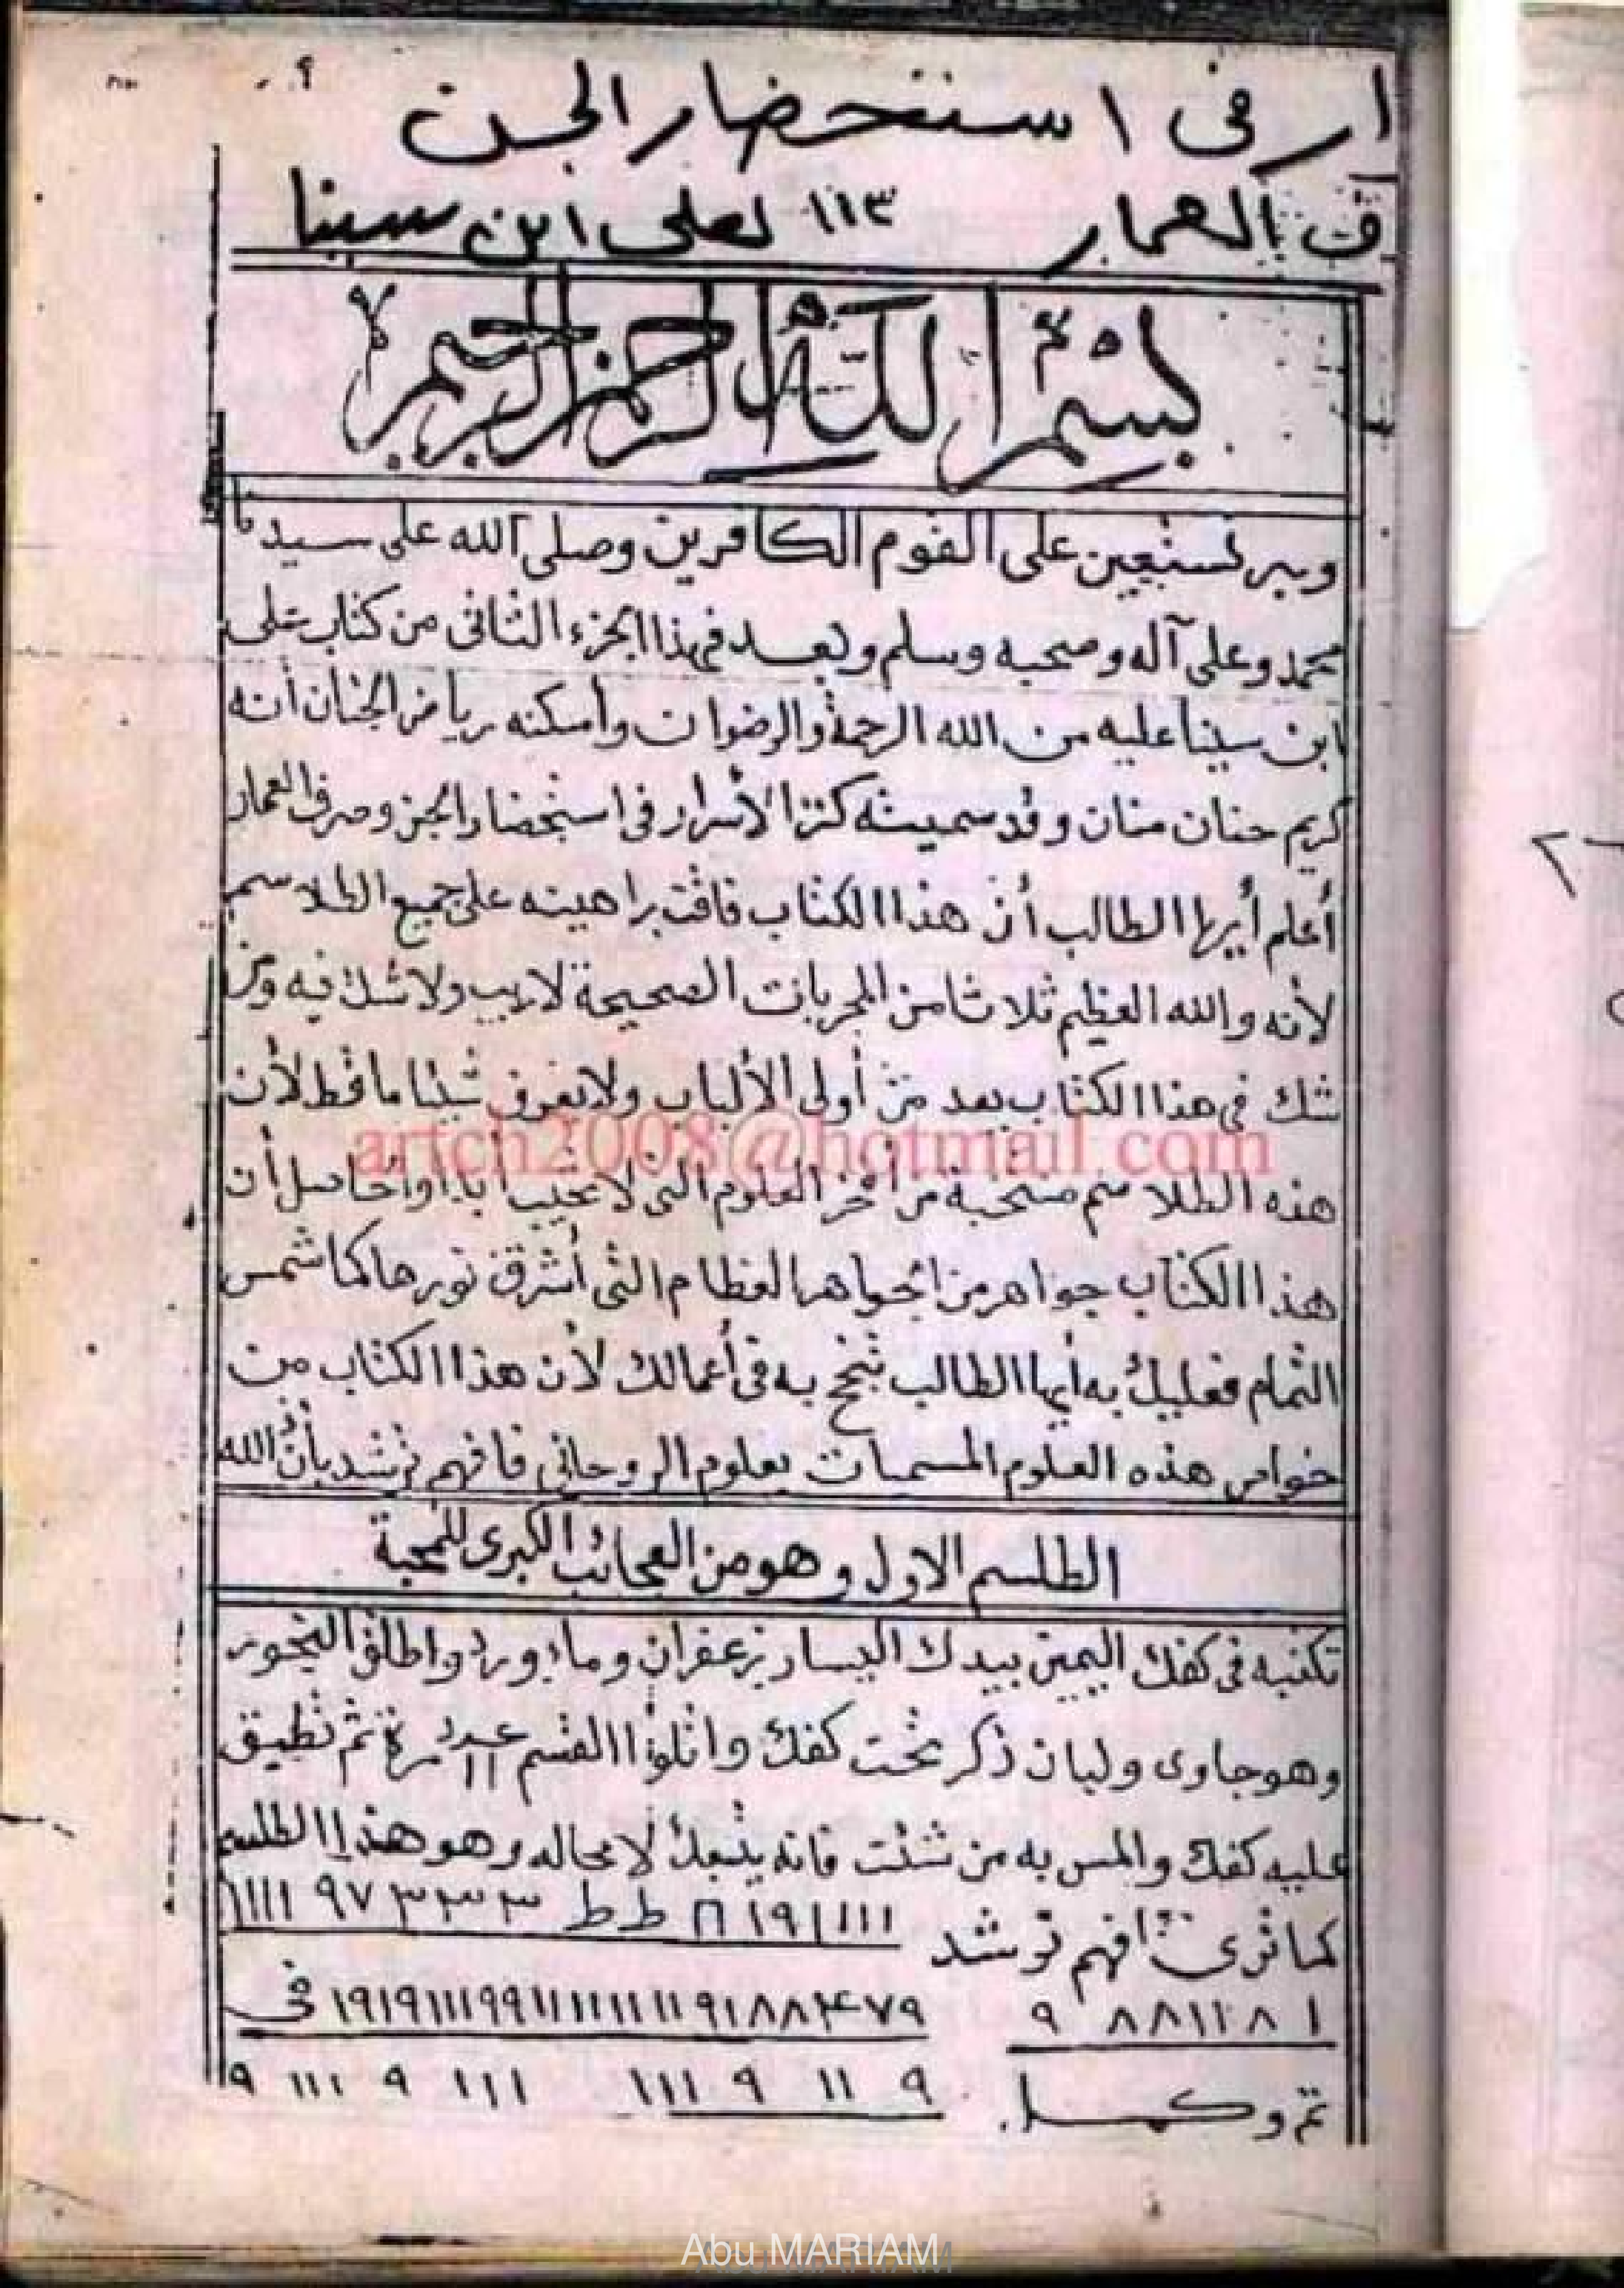 ار فى استحضار الجن
ف العمار ١١٣ لعلى ابن سينا
بسم الله الرحمن الرحيم
وبه نستعين على القوم الكافرين وصلى الله على سيدنا
محمد وعلى آله وصحبه وسلم وبعد فهذا الجزء الثانى من كتاب على
ابن سينا عليه من الله الرحمة والرضوان وأسكنه رياض الجنان أنه
كريم حنان منان وقد سميته كنز الأسرار فى استحضار الجن وصرف العمار
أعلم أيها الطالب أن هذا الكتاب فاقت براهينه على جميع الطلاسم
لأنه والله العظيم ثلاثا من المجربات الصحيحة لاريب ولاشك فيه ومن
شك فى هذا الكتاب يعد من أولى الألباب ولايعرف شيئا ما قط لأن
هذه الطلاسم منتخبة من العلوم التى لا تخيب أبدا والحاصل أن
هذا الكتاب جواهر من الجواهر العظام التى أشرق نورها كما شمس
التمام فعليك به أيها الطالب تنجح به فى أعمالك لأن هذا الكتاب من
خواص هذه العلوم المسميات بعلوم الروحانى فافهم ترشد بأذن الله
الطلسم الاول وهو من العجائب الكبرى للمحبة
تكتبه فى كفك اليمين بيدك اليسار زعفران وماء ورد واطلق البخور
وهو جاوى ولبان ذكر تحت كفك واتلوا القسم عدد ١١ مرة ثم تطبق
عليه كفك والمس به من شئت فانه يتبعك لامحاله وهو هذا الطلسم
كما ترى فافهم ترشد
٩ ٨٨١١٨١
تم وكمل.
artch2008@hotmail.com
Abu MARIAM